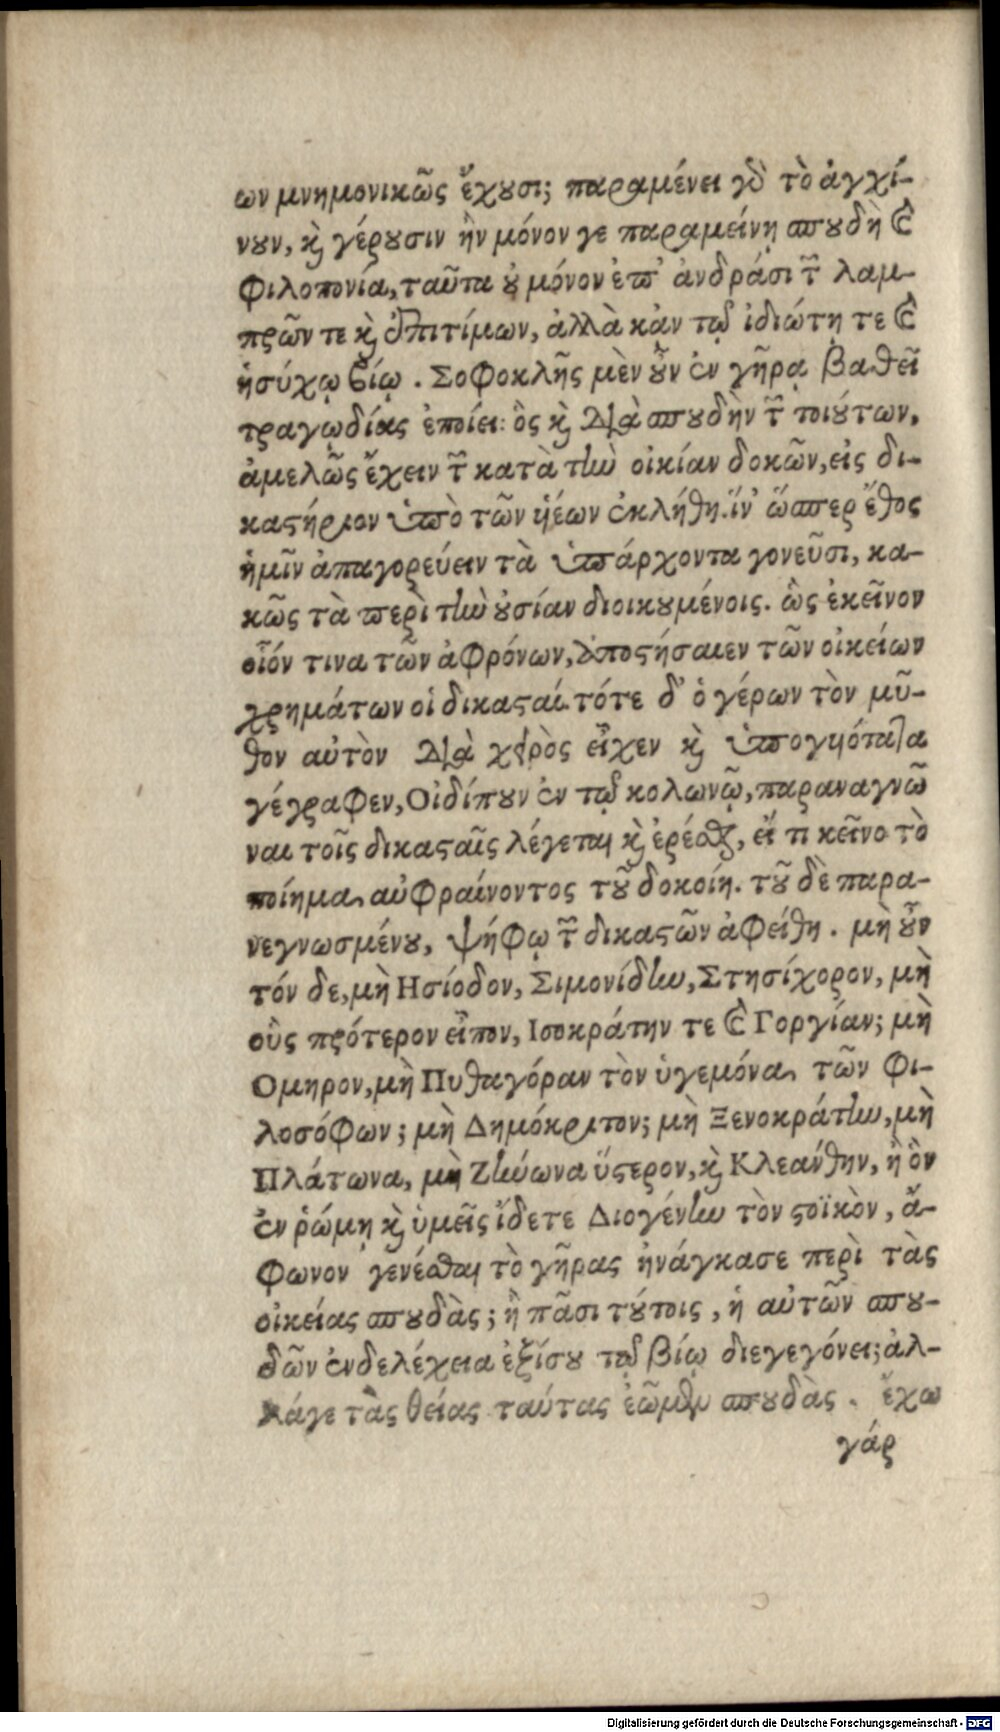 ων μνημονικῶς ἔχουσι; παραμένει γὸ τὸ ἀγχί-
νουν, καὶ γέρουσιν ἢν μόνον γε παραμείνῃ σπουδὴ καὶ
φιλοπονία, ταῦτα οὐ μόνον ἐπ' ἀνδράσι τῶν λαμ-
πρῶν τε καὶ ἐπιτίμων, ἀλλὰ κἀν τῷ ἰδιώτῃ τε καὶ
ἡσύχῳ βίῳ. Σοφοκλῆς μὲν οὖν ἐν γῆρᾳ βαθεῖ
τραγῳδίας ἐποίει: ὃς καὶ διὰ σπουδὴν τῶν τοιούτων,
ἀμελῶς ἔχειν τῶν κατὰ τὴν οἰκίαν δοκῶν, εἰς δι-
καστήριον ὑπὸ τῶν υἱέων ἐκλήθη. ἵν' ὥσπερ ἔθος
ἡμῖν ἀπαγορεύειν τὰ ὑπάρχοντα γονεῦσι, κα-
κῶς τὰ περὶ τὴν οὐσίαν διοικουμένοις. ὣς ἐκεῖνον
οἷόν τινα τῶν ἀφρόνων, ἀποστήσαιεν τῶν οἰκείων
χρημάτων οἱ δικασταί. τότε δ' ὁ γέρων τὸν μῦ-
θον αὐτὸν διὰ χειρὸς εἶχεν καὶ ὑπογυιότατα
γέγραφεν, Οἰδίπουν ἐν τῷ κολωνῷ, παραναγνῶ
ναι τοῖς δικασταῖς λέγεται καὶ ἐρέσθαι, εἴ τι κεῖνο τὸ
ποίημα αὐφραίνοντος τοῦ δοκοίη. τοῦ δὲ παρα-
νεγνωσμένου, ψήφῳ τῶν δικαστῶν ἀφείθη. μὴ οὖν
τόν δε, μὴ Ησίοδον, Σιμονίδην, Στησίχορον, μὴ
οὓς πρότερον εἶπον, Ισοκράτην τε καὶ Γοργίαν; μὴ
Ομηρον, μὴ Πυθαγόραν τὸν ὑγεμόνα τῶν φι-
λοσόφων; μὴ Δημόκριτον; μὴ Ξενοκράτην, μὴ
Πλάτωνα, μὴ Ζήνωνα ὕστερον, καὶ Κλεάνθην, ἢ ὃν
ἐν ῥώμῃ καὶ ὑμεῖς ἴδετε Διογένην τὸν στοϊκὸν, ἄ-
φωνον γενέσθαι τὸ γῆρας ἠνάγκασε περὶ τὰς
οἰκείας σπουδὰς; ἢ πᾶσι τούτοις, ἡ αὐτῶν σπου-
δῶν ἐνδελέχεια ἐξίσου τῷ βίῳ διεγεγόνει; ἀλ-
λάγε τὰς θείας ταύτας ἐῶμεν σπουδὰς. ἔχω
γάρ
Digitalisierung gefördert durch die Deutsche Forschungsgemeinschaft - DFG